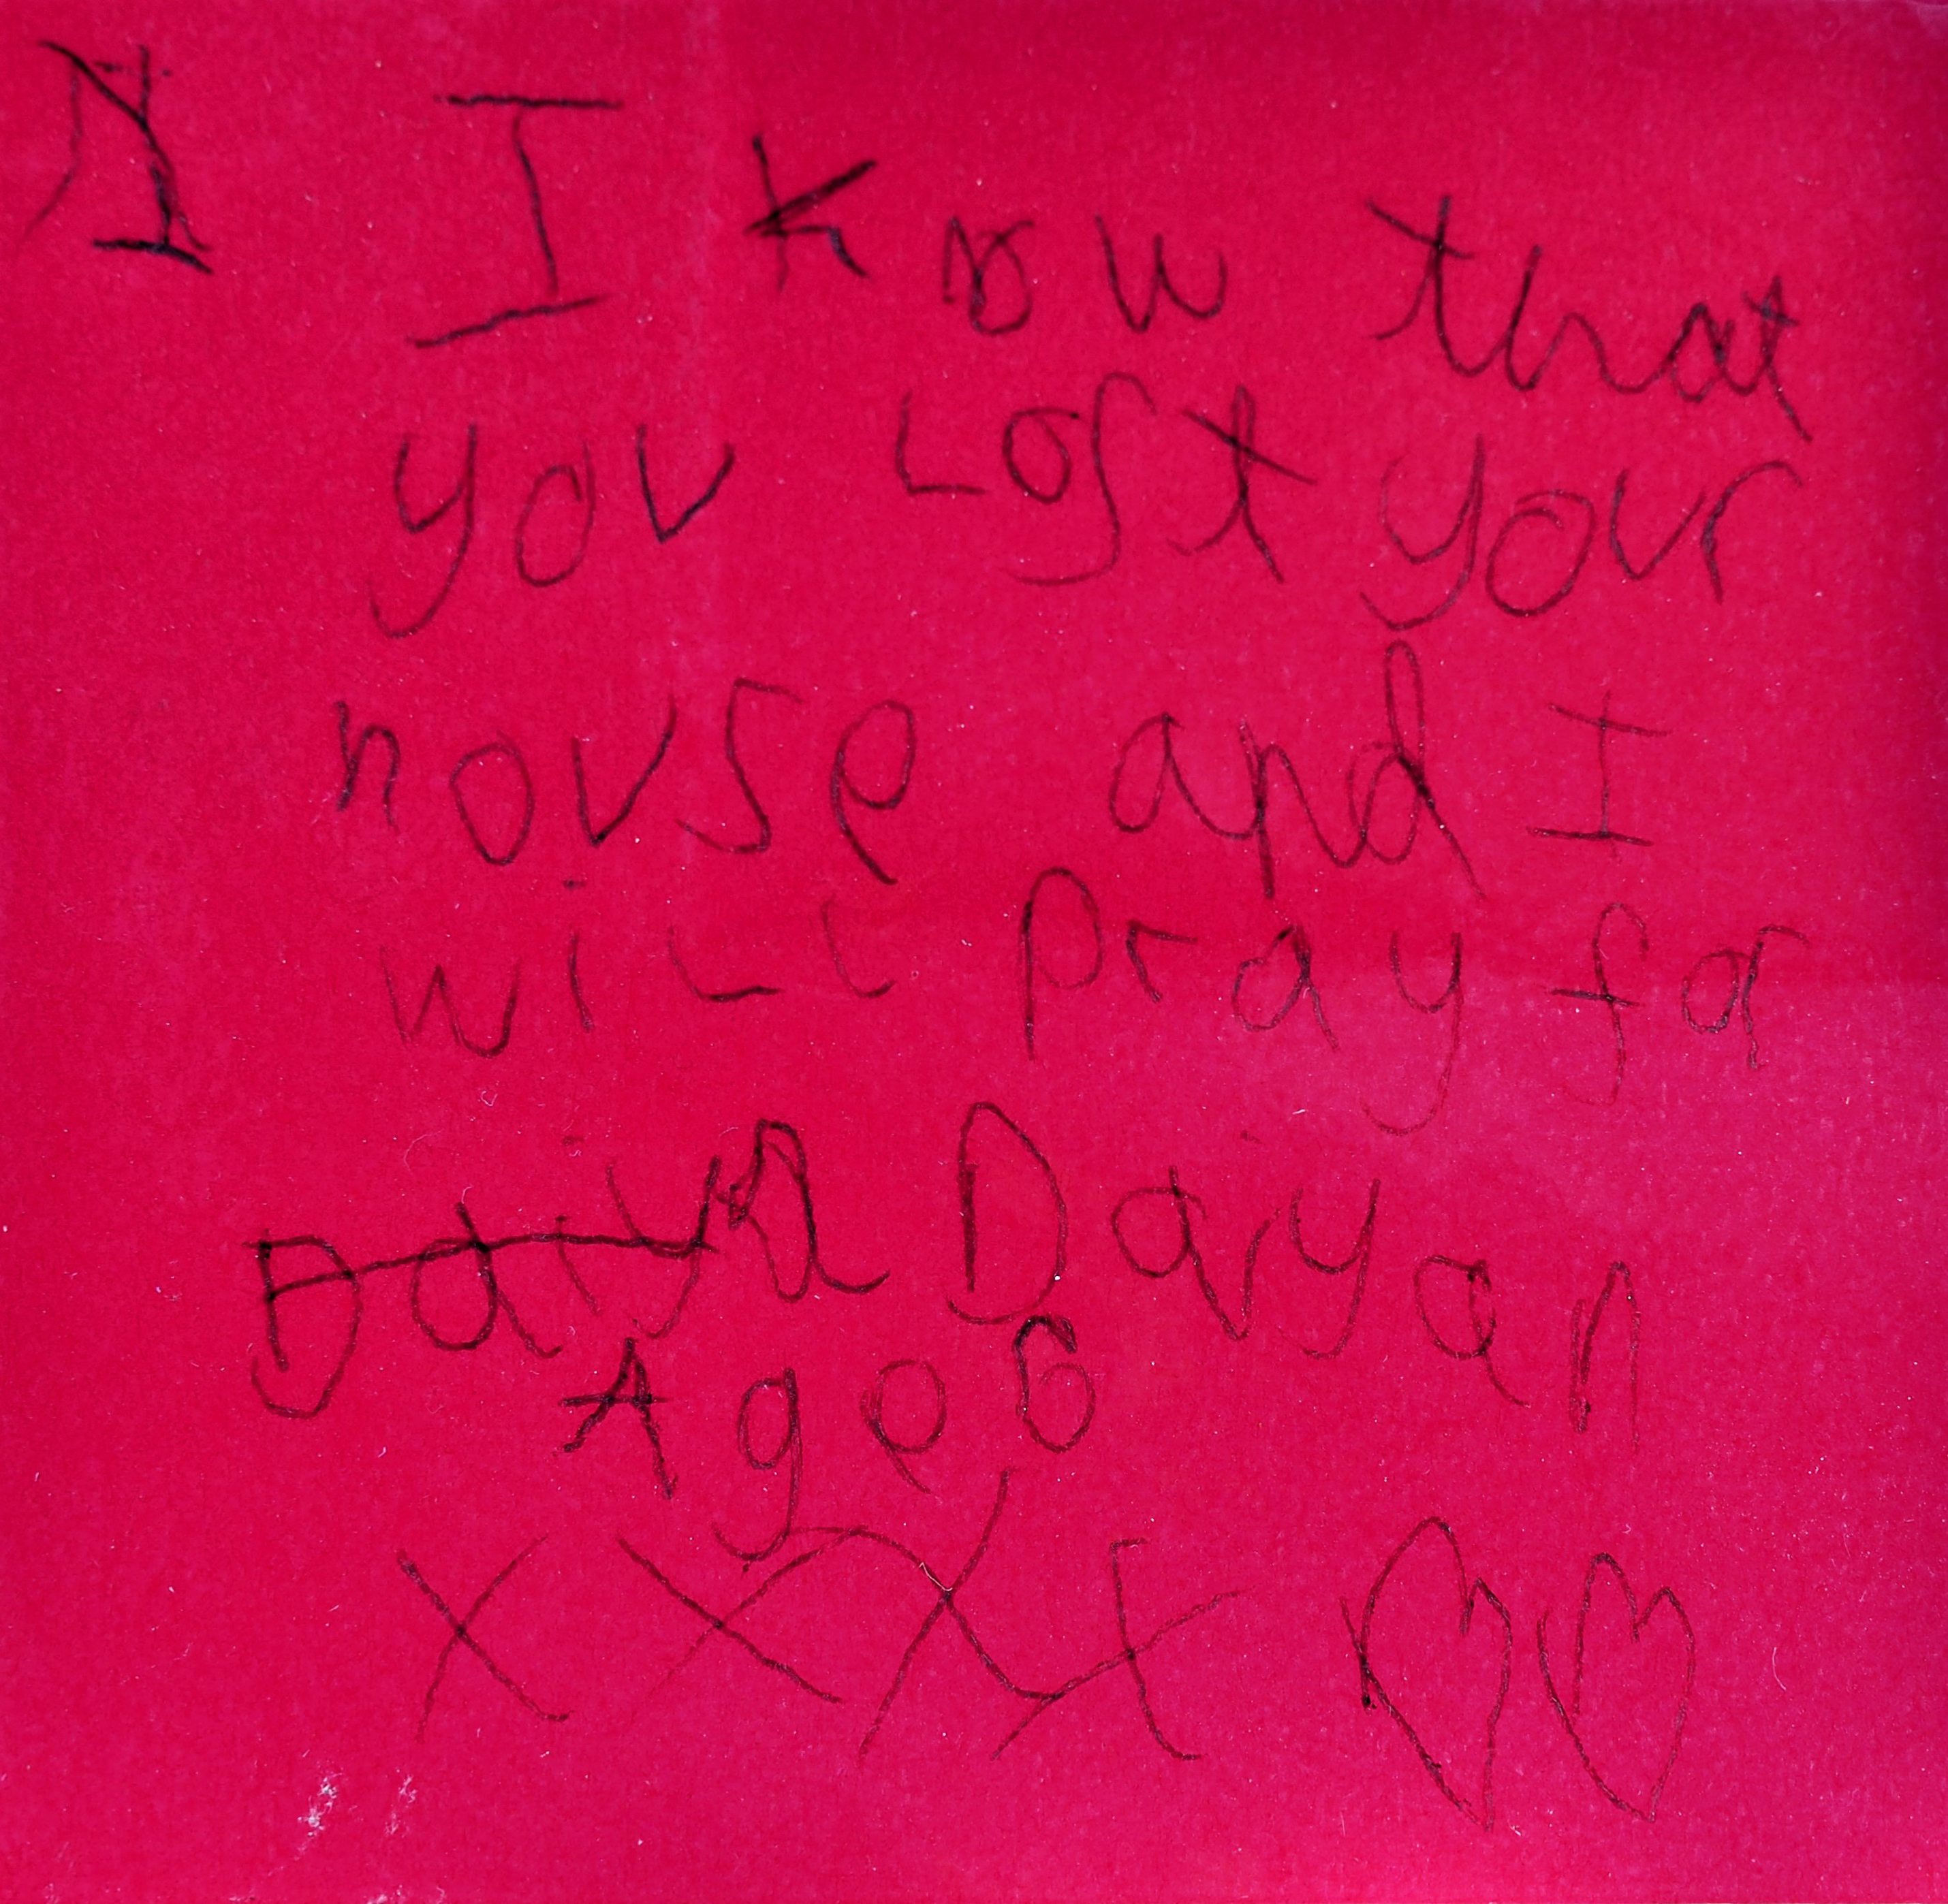 I know that
you Lost your
house and I
will pray for
Dayan
Age 6
X X X X